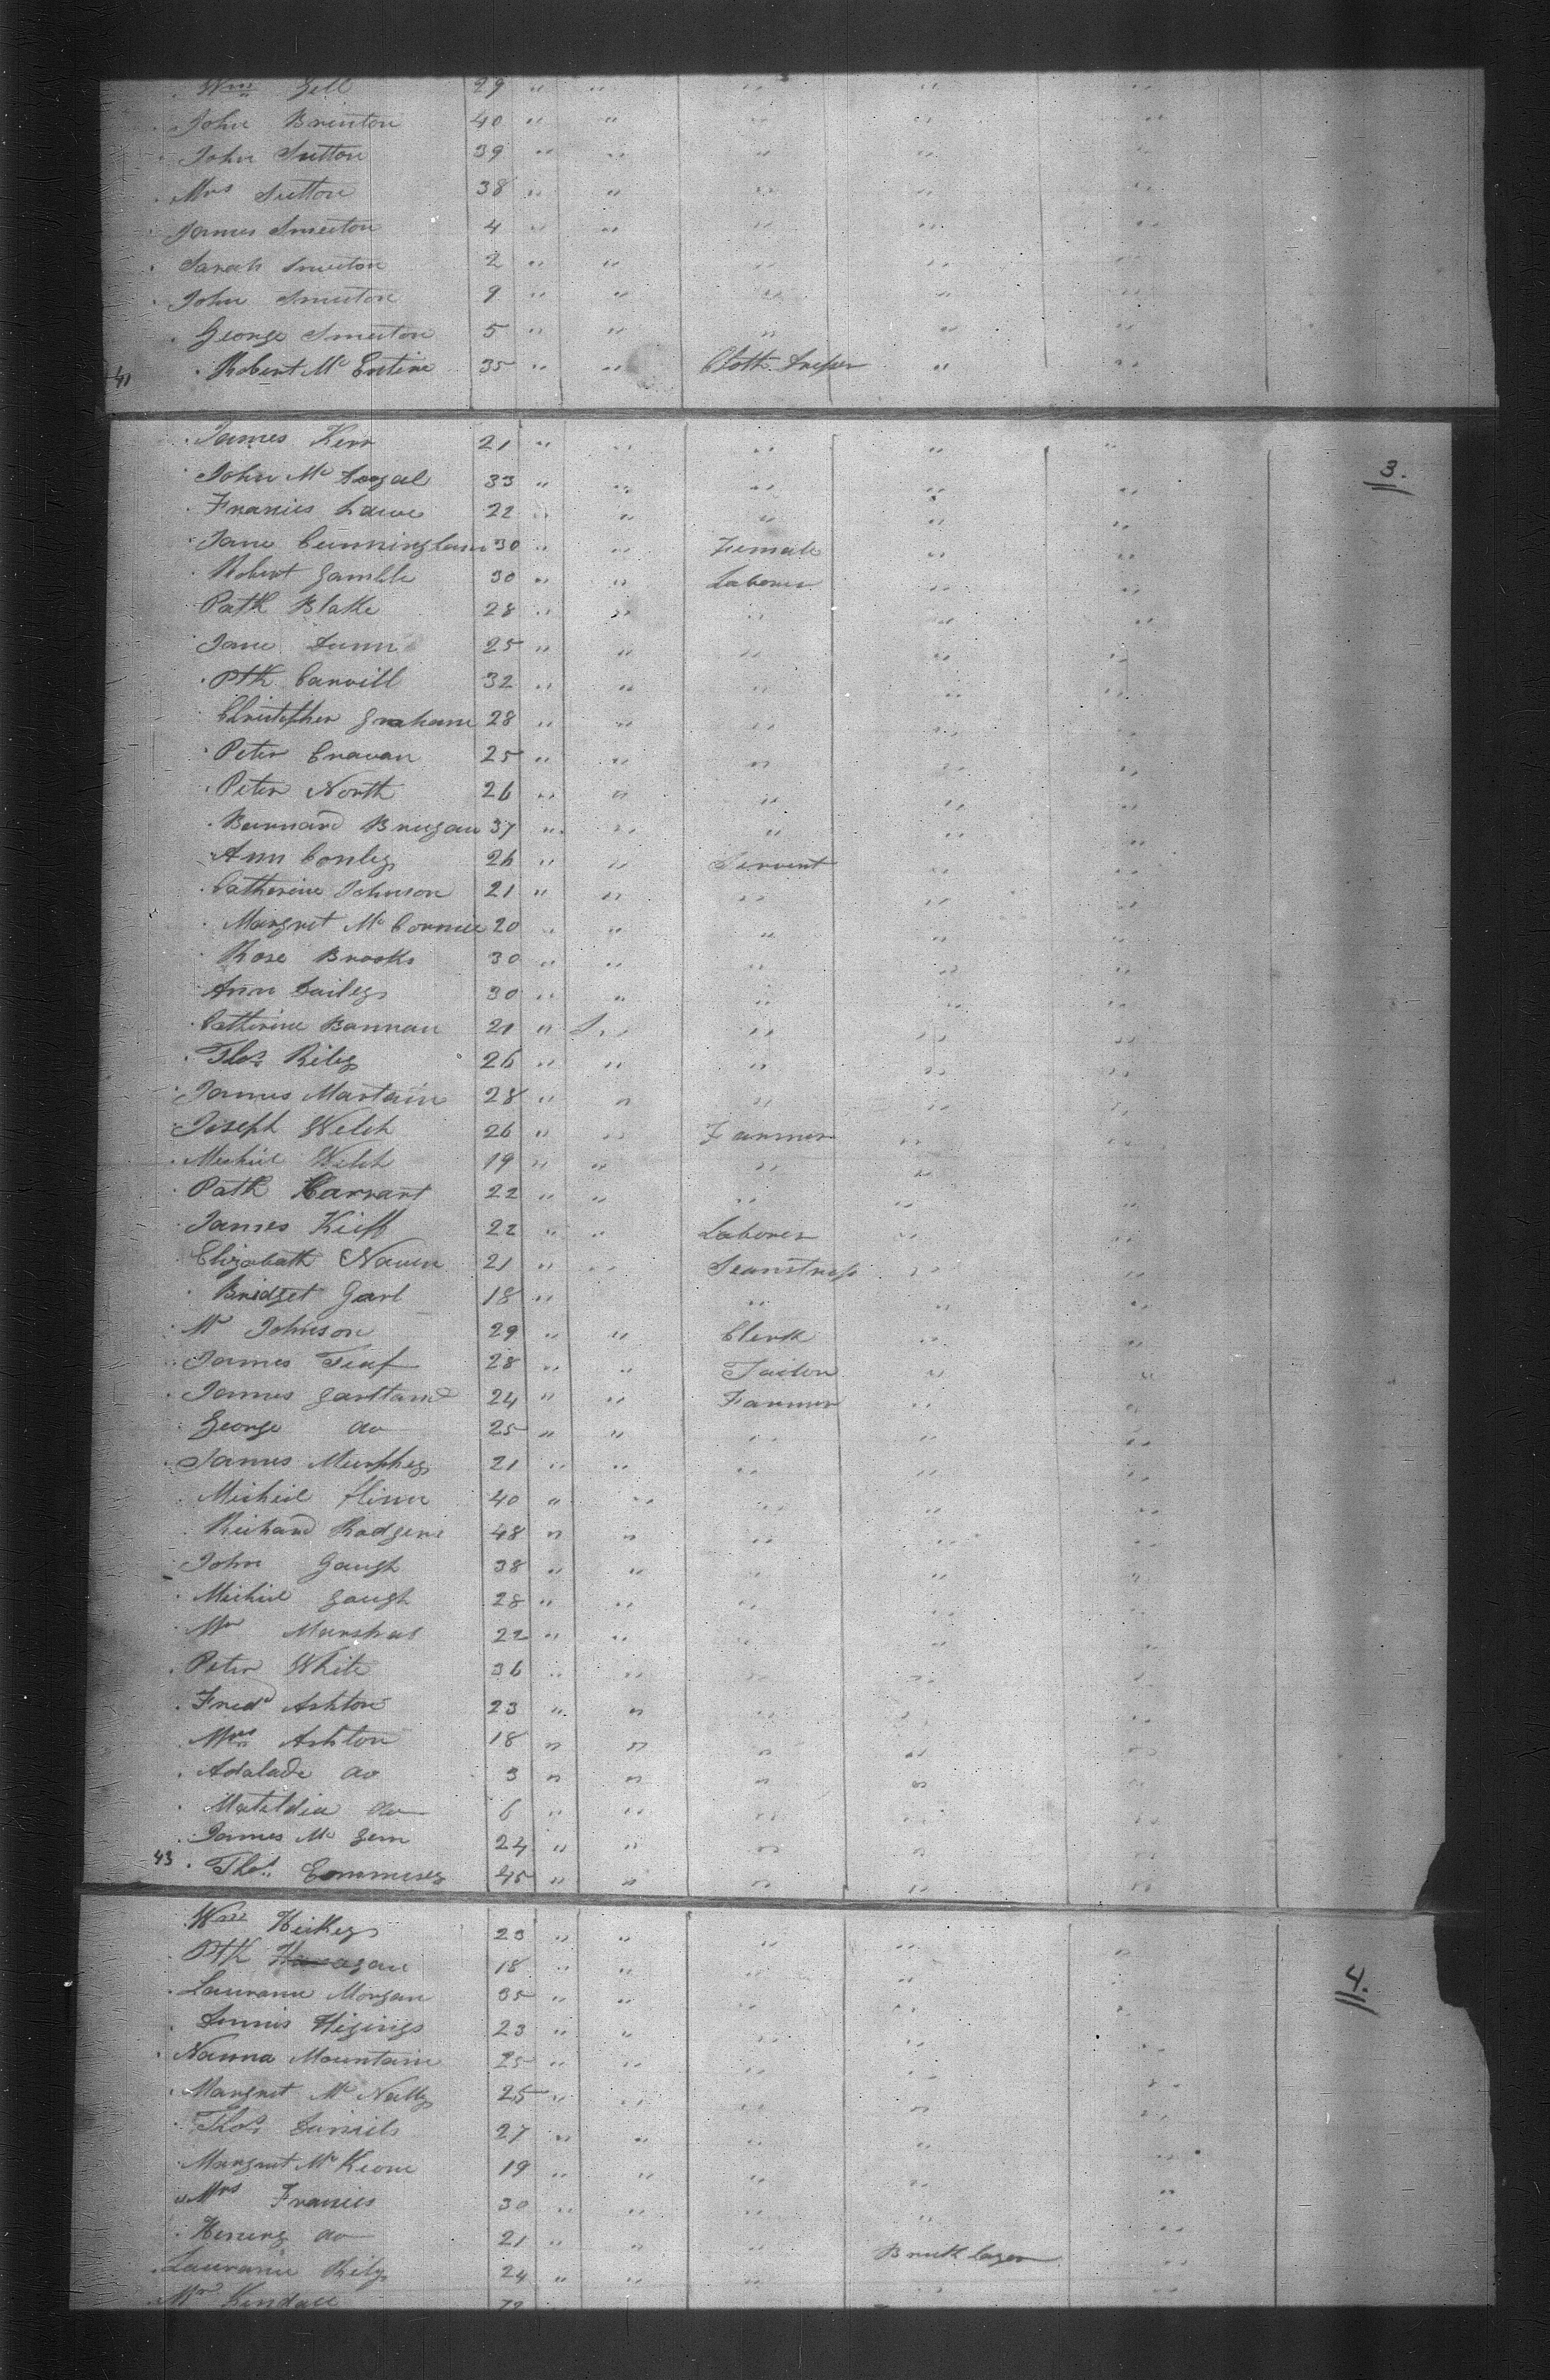 Wm Gell 29 " " " " "
John Brinton 40 " " " " "
John Sutton 39 " " " " "
Mrs Sutton 38 " " " " "
James Smeeton 4 " " " " "
Sarah Smeeton 2 " " " " "
John Smeeton 9 " " " " "
George Smeeton 5 " " " " "
41 Robert Mc Entire 35 " " Cloth " "
James Kerr 21 " " " " "
3.
John Mc Dogal 33 " " " " "
Francis Lawe 22 " " " " "
Jane Cunningham 30 " " Female " "
Robert Gamble 30 " " Laborer " "
Patk Blake 28 " " " " "
Jane Dunn 25 " " " " "
Ptk Carvill 32 " " " " "
Christopher Graham 28 " " " " "
Peter Cravan 25 " " " " "
Peter North 26 " " " " "
Burnard Brugan 37 " " " " "
Ann Conley 26 " " Servent " "
Catherine Johnson 21 " " " " "
Margret Mc Cormic 20 " " " " "
Rose Brooks 30 " " " " "
Ann Dailey 30 " " " " "
Catherine Bannan 21 " " " " "
Thos Riley 26 " " " " "
James Martain 28 " " " " "
Joseph Welch 26 " " Farmer " "
Micheil Welch 19 " " " " "
Patk Carrart 22 " " " " "
James Kieff 22 " " Laborer " "
Elizabath Naven 21 " " Seamstress " "
Bridget Garl 18 " " " "
Mr Johnson 29 " " Clerk " "
James Feaf 28 " " Tailor " "
James Gartland 24 " " Farmer " "
George do 25 " " " " "
James Murphey 21 " " " " "
Micheil Flinn 40 " " " " "
Richard Rodgers 48 " " " " "
John Gaugh 38 " " " " "
Micheil Gaugh 28 " " " " "
Mr Marshal 22 " " " " "
Peter White 36 " " " " "
Fred Ashton 23 " " " " "
Mrs Ashton 18 " " " " "
Adalade do 3 " " " " "
Matildia do 6 " " " " "
James Mc Gem 24 " " " " "
43 Thos Commesey 45 " " " " "
Wm Heikey 23 " " " " "
Ptk 18 " " " " "
4.
Laurance Morgan 35 " " " " "
Dennis Higings 23 " " " " "
Nanna Mountain 25 " " " " "
Margret Mc Nally 25 " " " " "
Thos Daniels 27 " " " " "
Margret Mc Keone 19 " " " " "
Mrs Francis 30 " " " " "
Henery do 21 " " " "
Laurance Rily 24 " " " Brick layer "
Mr Kendall